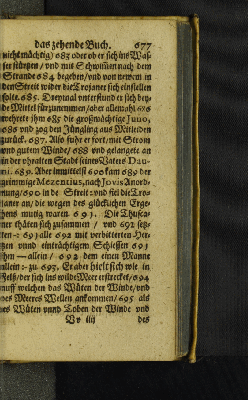 das zehende Buch. 677
nicht mächtig) 683 oder ob er sich ins Was-
ser stürtzen / und mit Schwimmen nach dem
Strande 684 begeben / und von newem in
den Streit wider die Trojaner sich einstellen
solte. 685. Dreymal unterfund er sich bey-
de Mittel fürzunemmen / aber allemahl 686
wehrete ihm 685 die großmächtige Juno,
686 und zog den Jüngling aus Mitleiden
zurück. 687. Also fuhr er fort / mit Strom
und gutem Winde / 688 und gelangete an
in der uhralten Stadt seines Vaters Dau-
ni. 689. Aber immittelst 606 kam 689 der
grimmige Mezentius, nach Jovis Anord-
nung / 690 in de Streit: und fiel die Tro-
janer an / die wegen des glücklichen Erge-
hens mutig waren 691. Die Thusca-
ner thäten sich zusammen / und 692 setz-
ten: 691 alle 692 mit verbitterten Her-
tzen unnd einträchtigem Schiessen 693
ihn — allein / 692 dem einen Manne
allein: zu 693. Er aber hielt sich wie in
Felß / der sich ins wilde Meer erstrecket / 694
auff welchen das Wüten der Winde / und
des Meeres Wellen ankommen / 695 als
es Wüten unnd Toben der Winde und
Vv iiij des